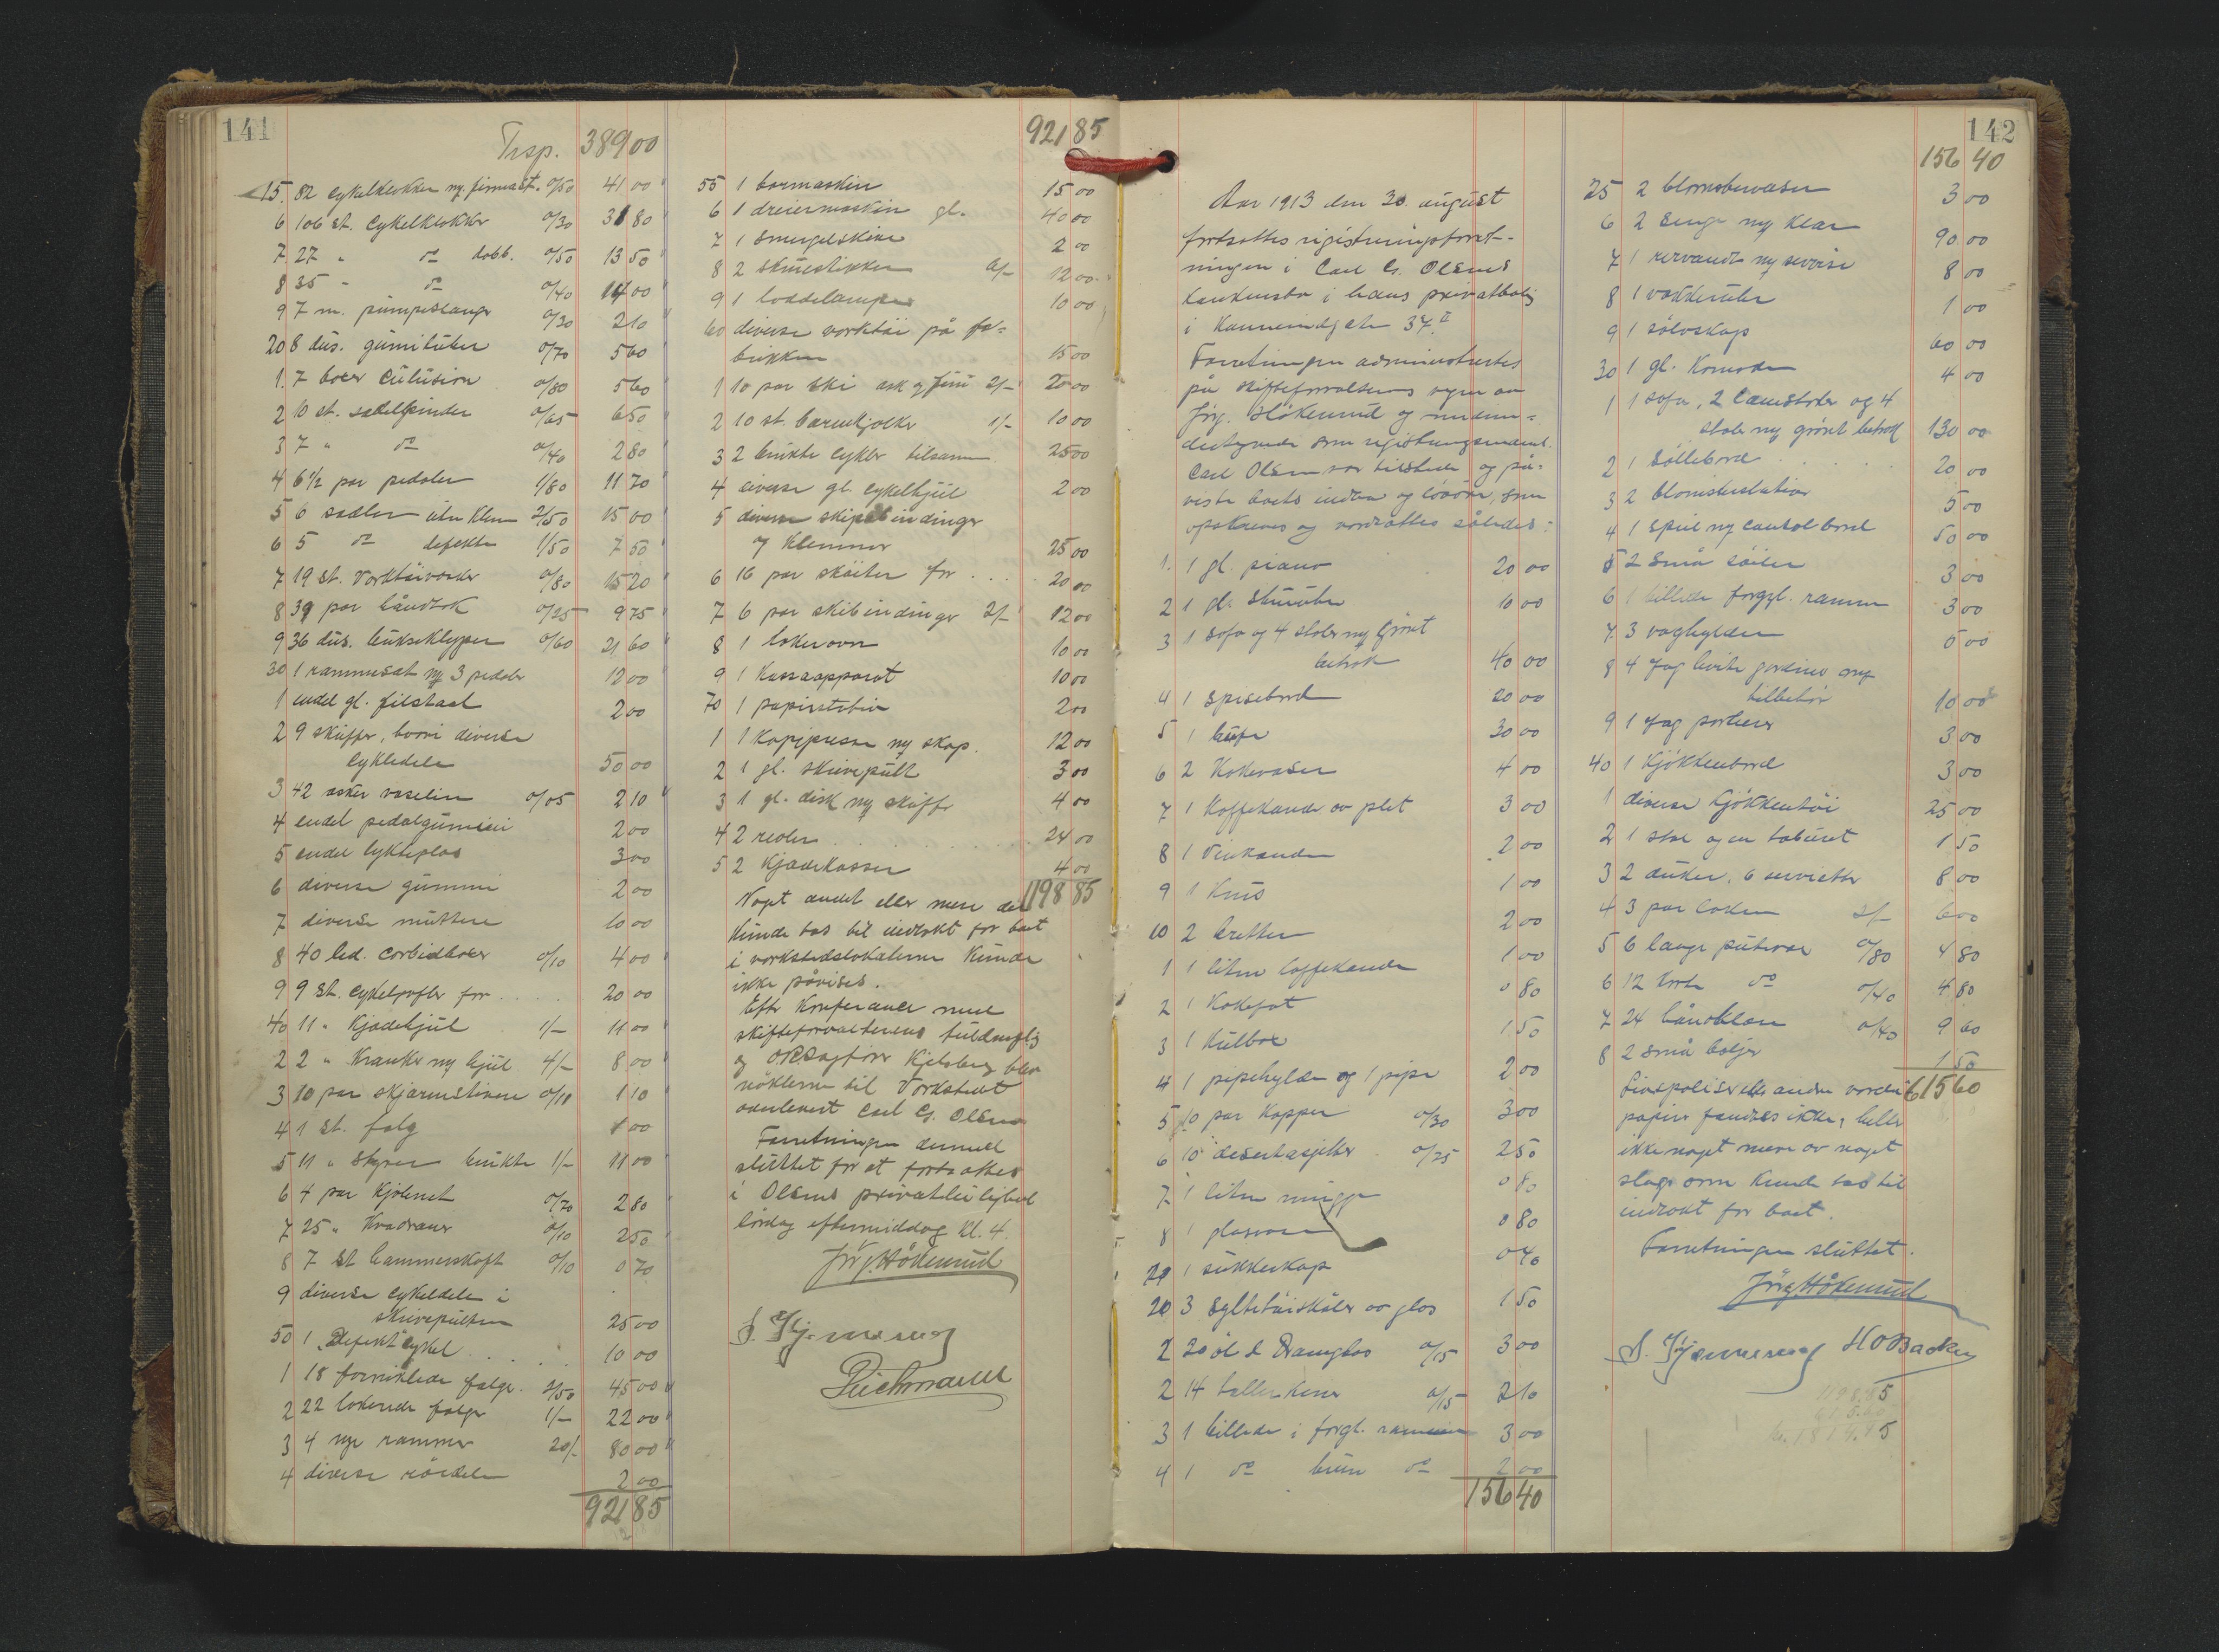 141
Trsp. 389 00
15. 82 cykelklokker 0/50 41 00
6 106 st. cykelklokker 0/30 31 80
7 27 " do dobb. 0/50 13 50
8 35 - do 0/40 14 00
9 7 m. pumpeslange 0/30 2 10
20 8 dus. gumi 0/70 5 60
1. 7 boxer Solution 0/80 5 60
2 10 st. sadelpinder 0/65 6 50
3 7 " do 0/40 2 80
4 6 1/2 par pedaler 1/80 11 70
5 6 sadler uten Klem 2/50 15 00
6 5 do defekte 1/50 7 50
7 19 st. Verktøivæsker 0/80 15 20
8 39 par håndtak 0/25 9 75
9 36 dus. bukseklyper 0/60 21 60
30 1 rammesæt m/ 3 pedaler 12 00
1 endel gl. filstaal 2 00
2 9 skuffer, hvori diverse
cykledele 50 00
3 42 æsker vaselin 0/05 2 10
4 endel pedalgummi 2 00
5 endel lykteglas 3 00
6 diverse gummi 2 00
7 diverse muttere 10 00
8 40 led. carbidboxer 0/10 4 00
9 9 st. cykel for 20 00
40 11 " Kjædehjul 1/- 11 00
2 2 " Kranker m/ hjul 4/- 8 00
3 10 par skjærmstivere 0/11 1 10
4 1 st. falg 1 00
5 11 " Styrer brukte 1/- 11 00
6 4 par Kjolenet 0/70 2 80
7 25 " 0/10 2 50
8 7 st hammerskaft 0/10 0 70
9 diverse cykeldele i
skrivepulten 25 00
50 1 Defekt cykel 10 00
1 18 forniklede falge 2/50 45 00
2 22 lakerede falger 1/- 22 00
3 4 nye rammer 20/- 80 00
4 diverse rördele 2 00
921 85
921 85
55 1 bormaskin 15 00
6 1 dreiermaskin gl. 40 00
7 1 Smergelskive 2 00
8 2 skruestikker 6/- 12 00
9 1 loddelampe 10 00
60 diverse verktøi på fa-
brikken 15 00
1 10 par ski ask og furu 2/- 20 00
2 10 st. barnekjelker 1/- 10 00
3 2 brukte cykler tilsammen 25 00
4 diverse gl. cykelhjul 2 00
5 diverse skibindinger
og Klemmer 25 00
6 16 par skøiter for 20 00
7 6 par skibindinger 2/- 12 00
8 1 lakerovn 10 00
9 1 Kassaapparat 10 00
70 1 papirstativ 2 00
1 1 Kopipresse m/ skap 12 00
2 1 gl. skrivepult 3 00
3 1 gl. disk m/ skuffe 4 00
4 2 reoler 24 00
5 2 Kjædekasser 4 00
1198 85
Noget andet eller mere der
Kunde tas til indtækt for boet
i verkstedslokalerne Kunde
ikke påvises.
Efter Konferance med
skifteforvalterens fuldmægtig
og ORSagfører Kjelsberg blev
nøklerne til Verkstedet
overlevert Carl G. Olsen
Forretningen dermed
sluttet for at fortsættes
i Olsens privatleilighet
lørdag eftermiddag Kl. 4.
Jörg. Hökerud
142
Aar 1913 den 30. august
fortsattes registreringsforret-
ningen i Carl G. Olsens
konkursbo i hans privatbolig
i 37. II
Forretningen administrertes
på skifteforvalterens vegne av
Jörg. Hökerud og under-
tegnede som registreringsmænd.
Carl Olsen var tilstede og på-
viste boets indbo og løsøre, som
opskreves og værdsattes således:
1. 1 gl. piano 20 00
2 1 gl. Stueuhr 10 00
3 1 Sofa og 4 stoler m/ grønt
betræk 40 00
4 1 Spisebord 20 00
5 1 bufe 30 00
6 2 Kakevaser 4 00
7 1 Kaffekande av plet 3 00
8 1 Vinkande 2 00
9 1 Krus 1 00
10 2 bretter 2 00
1 1 liten kaffekande 1 00
2 1 Kakefat 0 80
3 1 Kulbox 1 50
4 1 pipehylde og 1 pipe 2 00
5 10 par Kopper 0/30 3 00
6 10 desertasjetter 0/25 2 50
7 1 liten mugge 0 80
8 1 glasvase 0 80
1 sukkerkop 0 40
20 3 Syltetøiskåler av glas 1 50
2 20 øl & Dramglas 0/15 3 00
2 14 tallerkener 0/15 2 10
3 1 billede i forgl. ramme 3 00
4 1 do brun do 2 00
156 40
156 40
25 2 blomstervaser 3 00
6 2 Senge m/ Klær 90 00
7 1 servant m/ servise 8 00
8 1 vækkeruhr 1 00
9 1 sølvskap 60 00
30 1 gl. Komode 4 00
1 1 sofa, 2 lænestoler og 4
stoler m/ grønt betræk 130 00
2 1 Sallebord 20 00
3 2 blomsterstativer 5 00
4 1 Speil m/ consolbord 50 00
5 2 Små søiler 3 00
6 1 billede forgyl. ramme 3 00
7 3 væghylder 5 00
8 4 fag hvite gardiner m/
tilbehør 10 00
9 1 fag portierer 3 00
40 1 Kjøkkenbord 3 00
1 diverse Kjøkkentøi 25 00
2 1 stol og en taburet 1 50
3 2 duker, 6 servietter 8 00
4 3 par laken 2/- 6 00
5 6 lange putevar 0/80 4 80
6 12 korte do 0/40 4 80
7 24 håndklær 0/40 9 60
8 2 små boljer 1 50
615 60
Livspoliser eller andre værdi
papirer fandtes ikke, heller
ikke noget mere av noget
slags som Kunde tas til
indtækt for boet.
Forretningen sluttet.
Jörg. Hökerud
H O Backe
1198.85
615.60
Kr. 1814.45